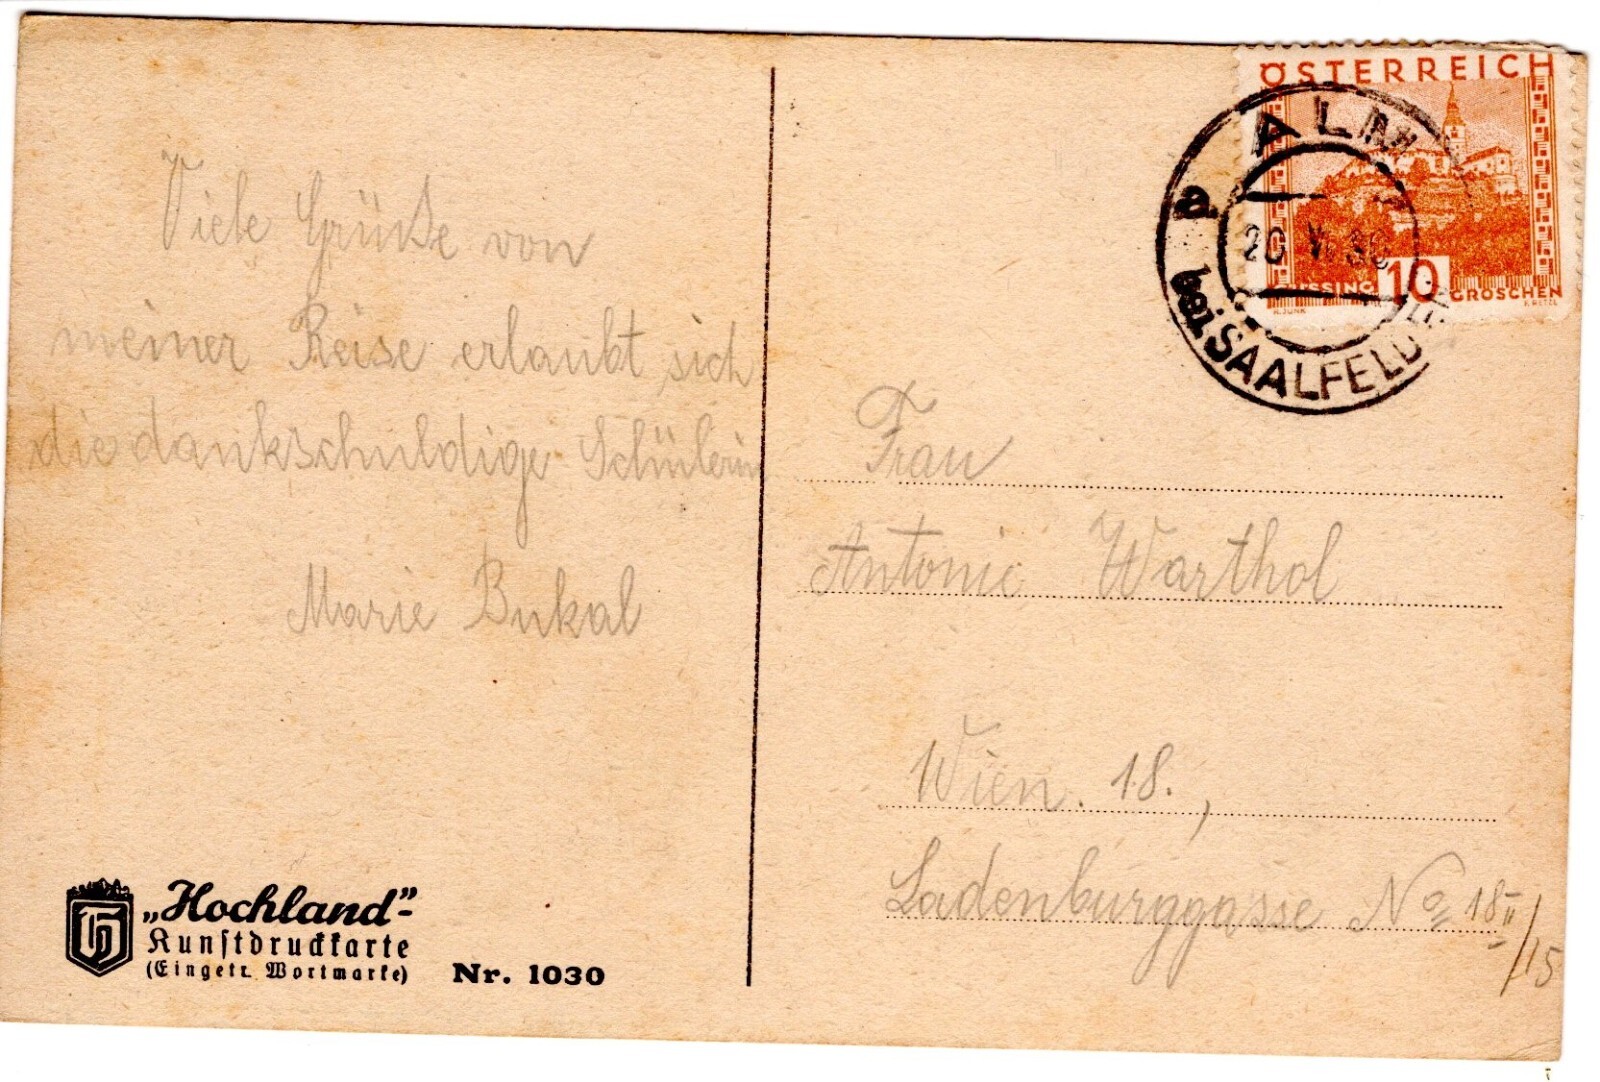 Viele Grüße von
meiner Reise erlaubt sich
die dankschuldige Schülerin
Marie Bukal
„Hochland"-
Kunstdruckkarte
(Eingetr. Wortmarke)
Nr. 1030
ÖSTERREICH
10
GROSCHEN
H. JUNK
ALM
a
20 VI
bei SAALFELDEN
Frau
Antonie Warthol
Wien. 18.,
Ladenburggasse No 18 II/15